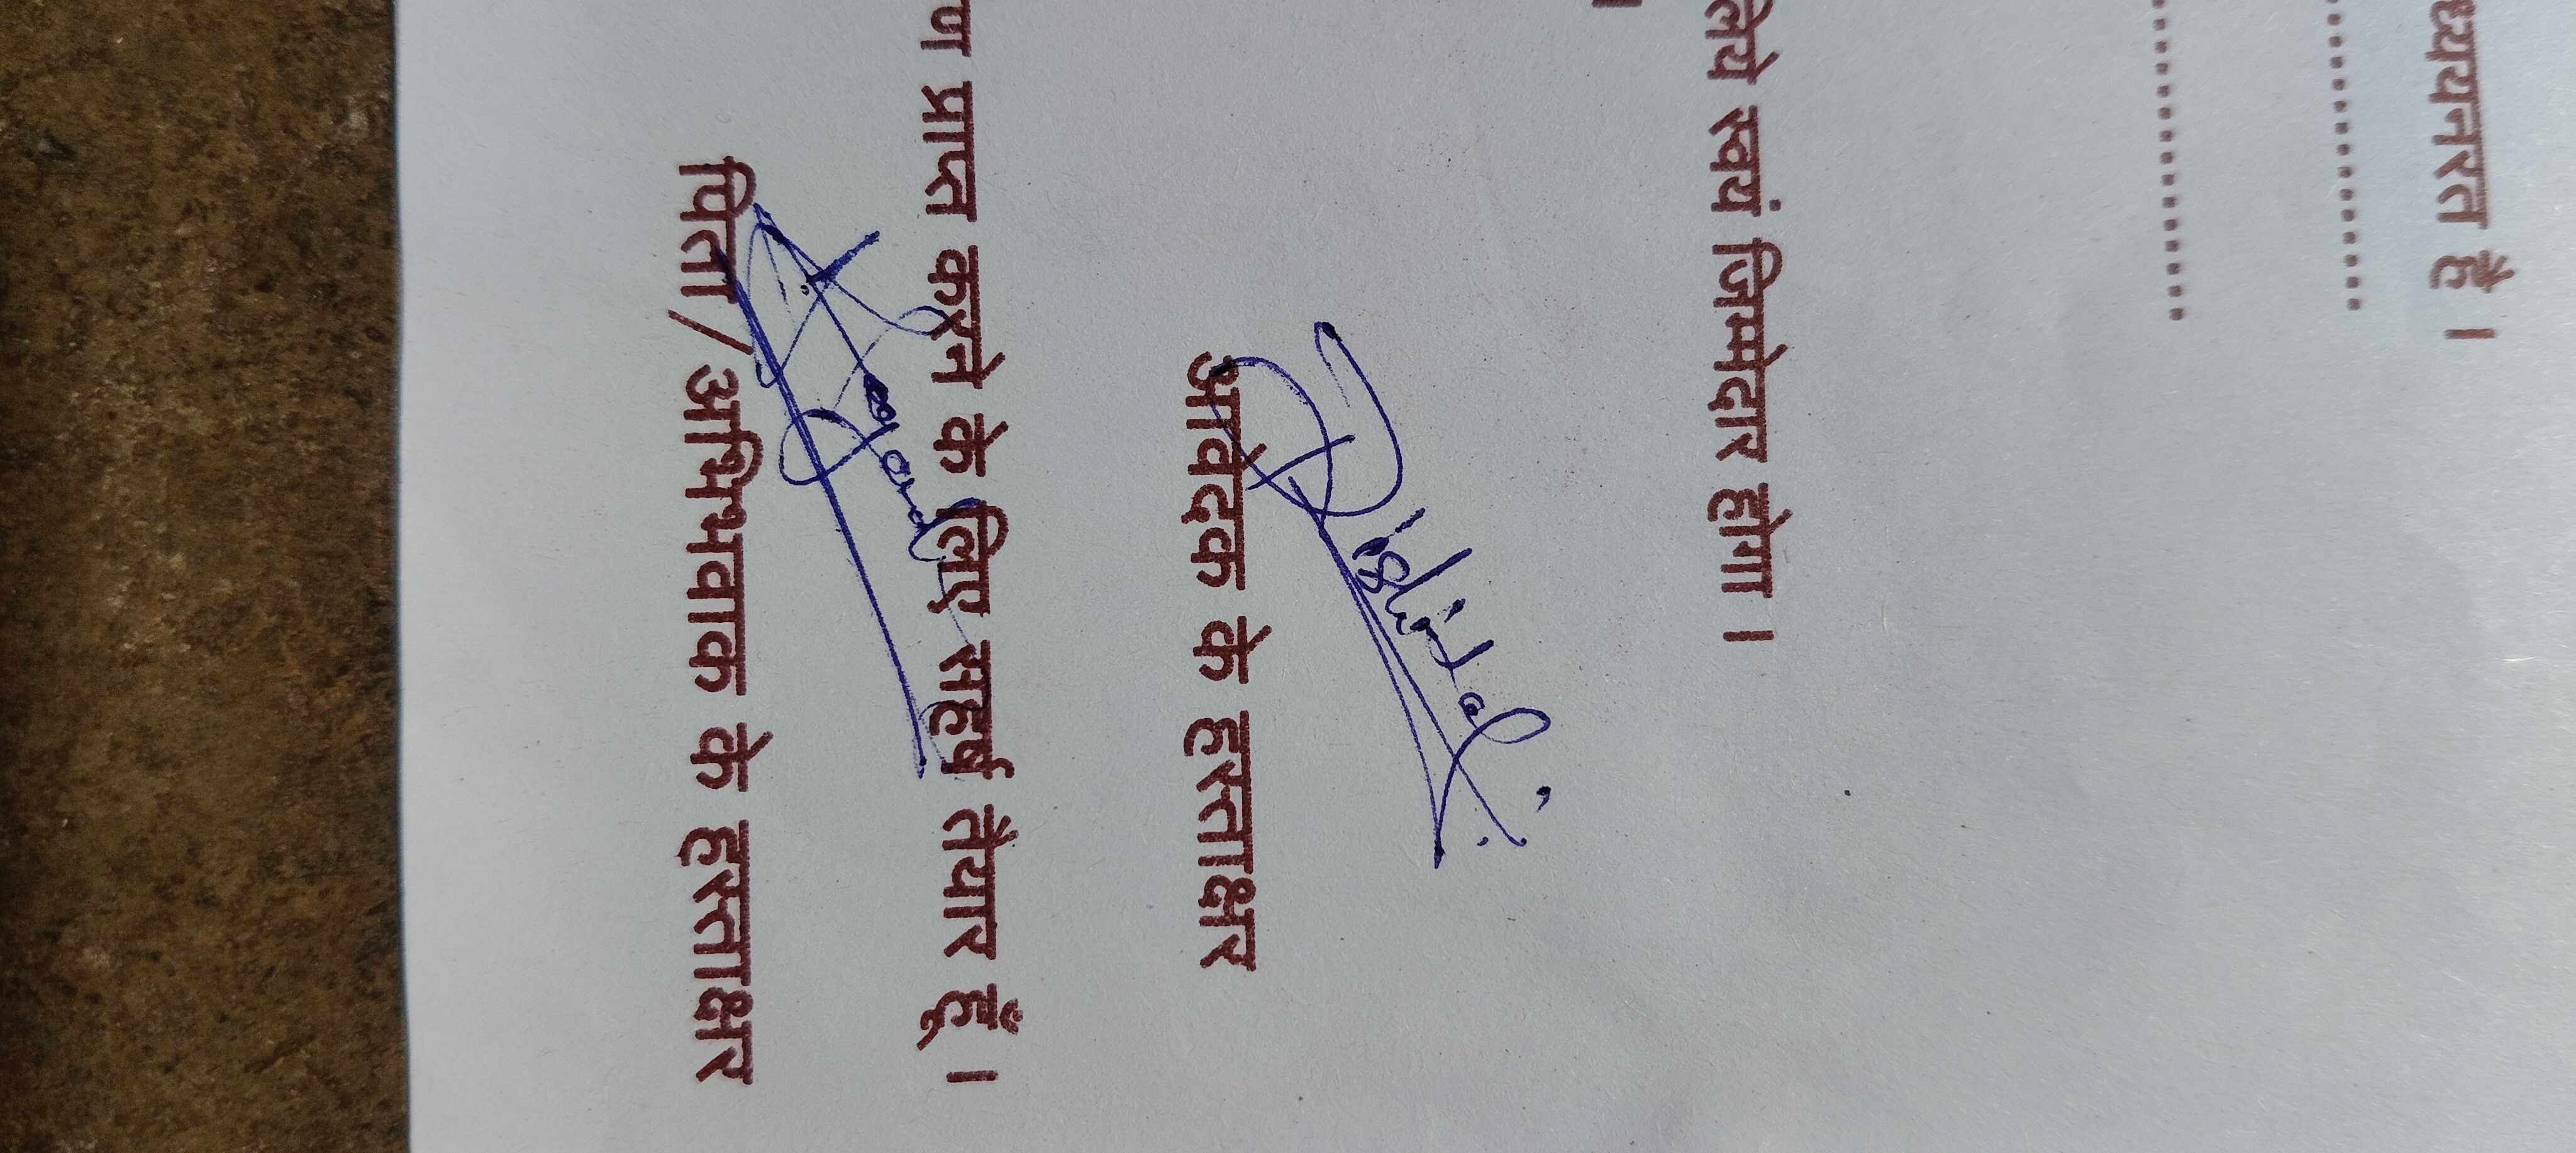 ध्ययनरत है ।
..................
..................
लिये स्वयं जिम्मेदार होगा ।
।
आवेदक के हस्ताक्षर
ण प्राप्त करने के लिए सहर्ष तैयार हूँ ।
पिता/अभिभवाक के हस्ताक्षर